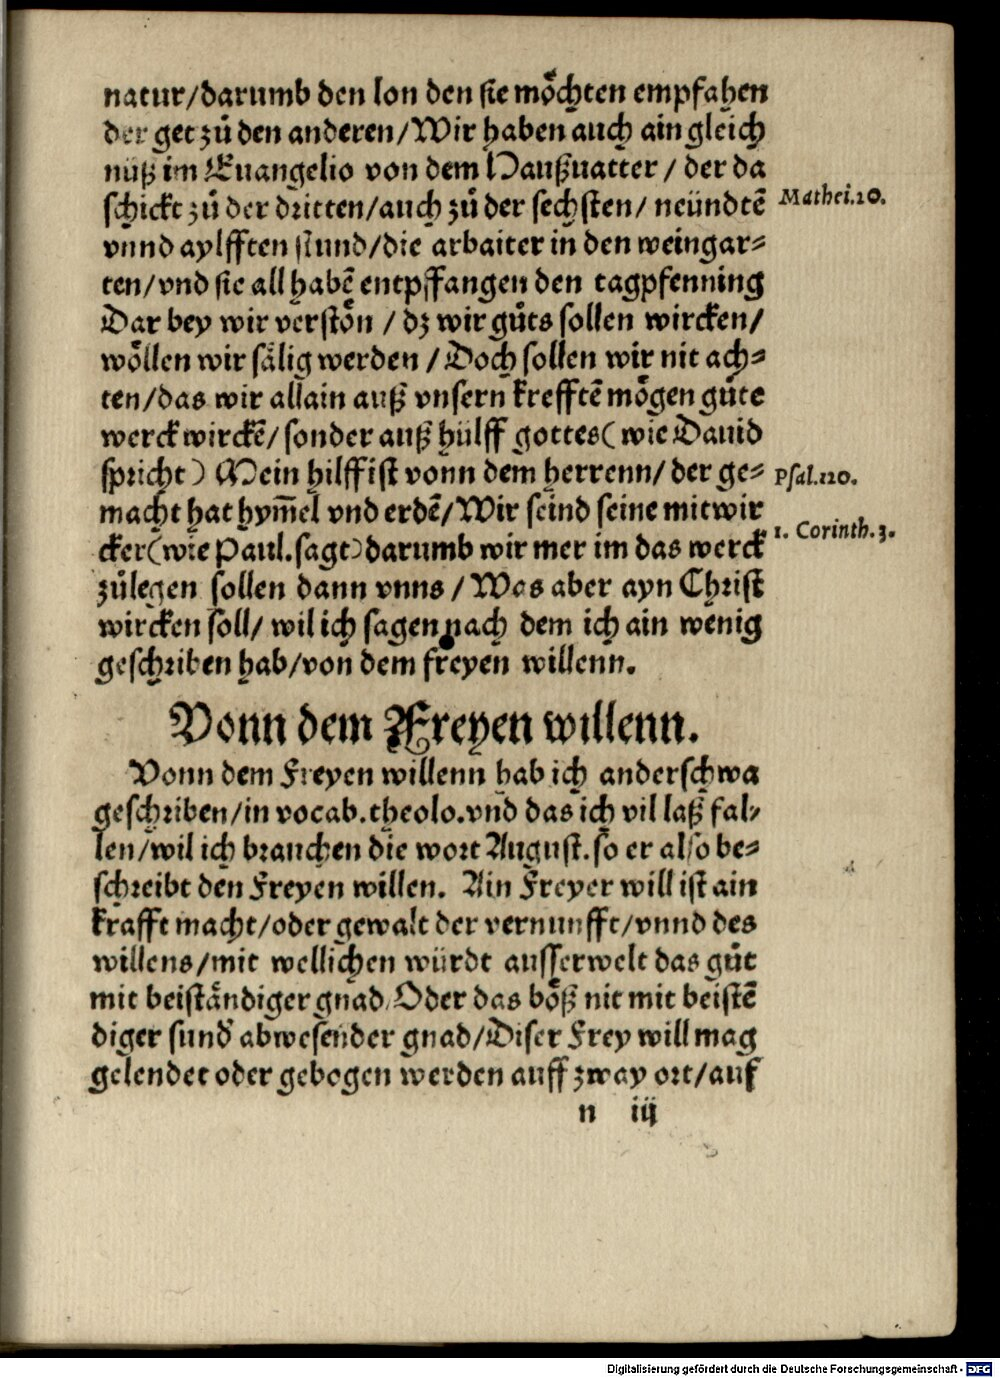 natur/darumb den lon den sie moͤchten empfahen
der get zuͦ den anderen/Wir haben auch ain gleich
nuß im Euangelio von dem Haußuatter / der da
schickt zuͦ der dritten/auch zuͦ der sechsten/ neündtē
Mathei.20.
vnnd aylfften stund/die arbaiter in den weingar⸗
ten/vnd sie all habē entpffangen den tagpfenning
Dar bey wir verstoͤn / dz wir guͦts sollen wircken/
woͤllen wir saͤlig werden / Doch sollen wir nit ach⸗
ten/das wir allain auß vnsern krefftē moͤgen guͦte
werck wirckē/ sonder auß hülff gottes( wie Dauid
spricht) Mein hilff ist vonn dem herrenn/ der ge⸗
Psal.120.
macht hat hym̄el vnd erdē/Wir seind seine mitwir
cker(wie Paul.sagt)darumb wir mer im das werck
1. Corinth.3.
zuͦlegen sollen dann vnns / Was aber ayn Christ
wircken soll/ wil ich sagen nach dem ich ain wenig
geschriben hab/von dem freyen willenn.
Vonn dem Freyen willenn.
Vonn dem Freyen willenn hab ich anderschwa
geschriben/in vocab.theolo.vnd das ich vil laß fal⸗
len/wil ich brauchen die wort August.so er also be⸗
schreibt den Freyen willen. Ain Freyer will ist ain
krafft macht/oder gewalt der vernunfft/vnnd des
willens/mit wellichen würdt ausserwelt das guͦt
mit beistaͤndiger gnad/Oder das boͤß nit mit beistē
diger sund abwesender gnad/Diser Frey will mag
gelendet oder gebogen werden auff zway ort/auf
n iij
Digitalisierung gefördert durch die Deutsche Forschungsgemeinschaft - DFG